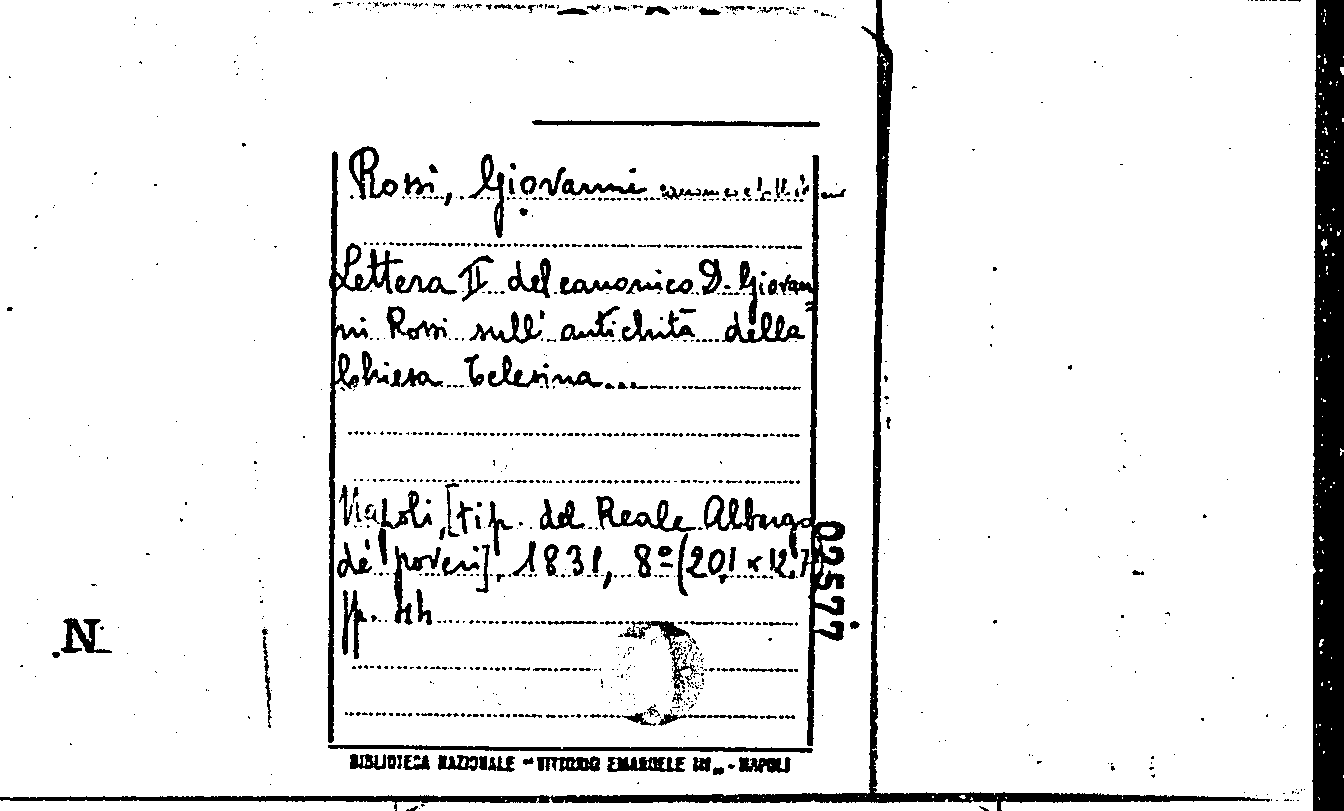 Rossi, Giovanni
Lettera II del canonico D. Giovan=
ni Rossi sull' antichità della
Chiesa Telesina...
Napoli, [tip. del Reale Albergo
de' poveri], 1831, 8º (20,1 x 12,7)
pp. 44
02577
N
BIBLIOTECA NAZIONALE "VITTORIO EMANUELE III" - NAPOLI